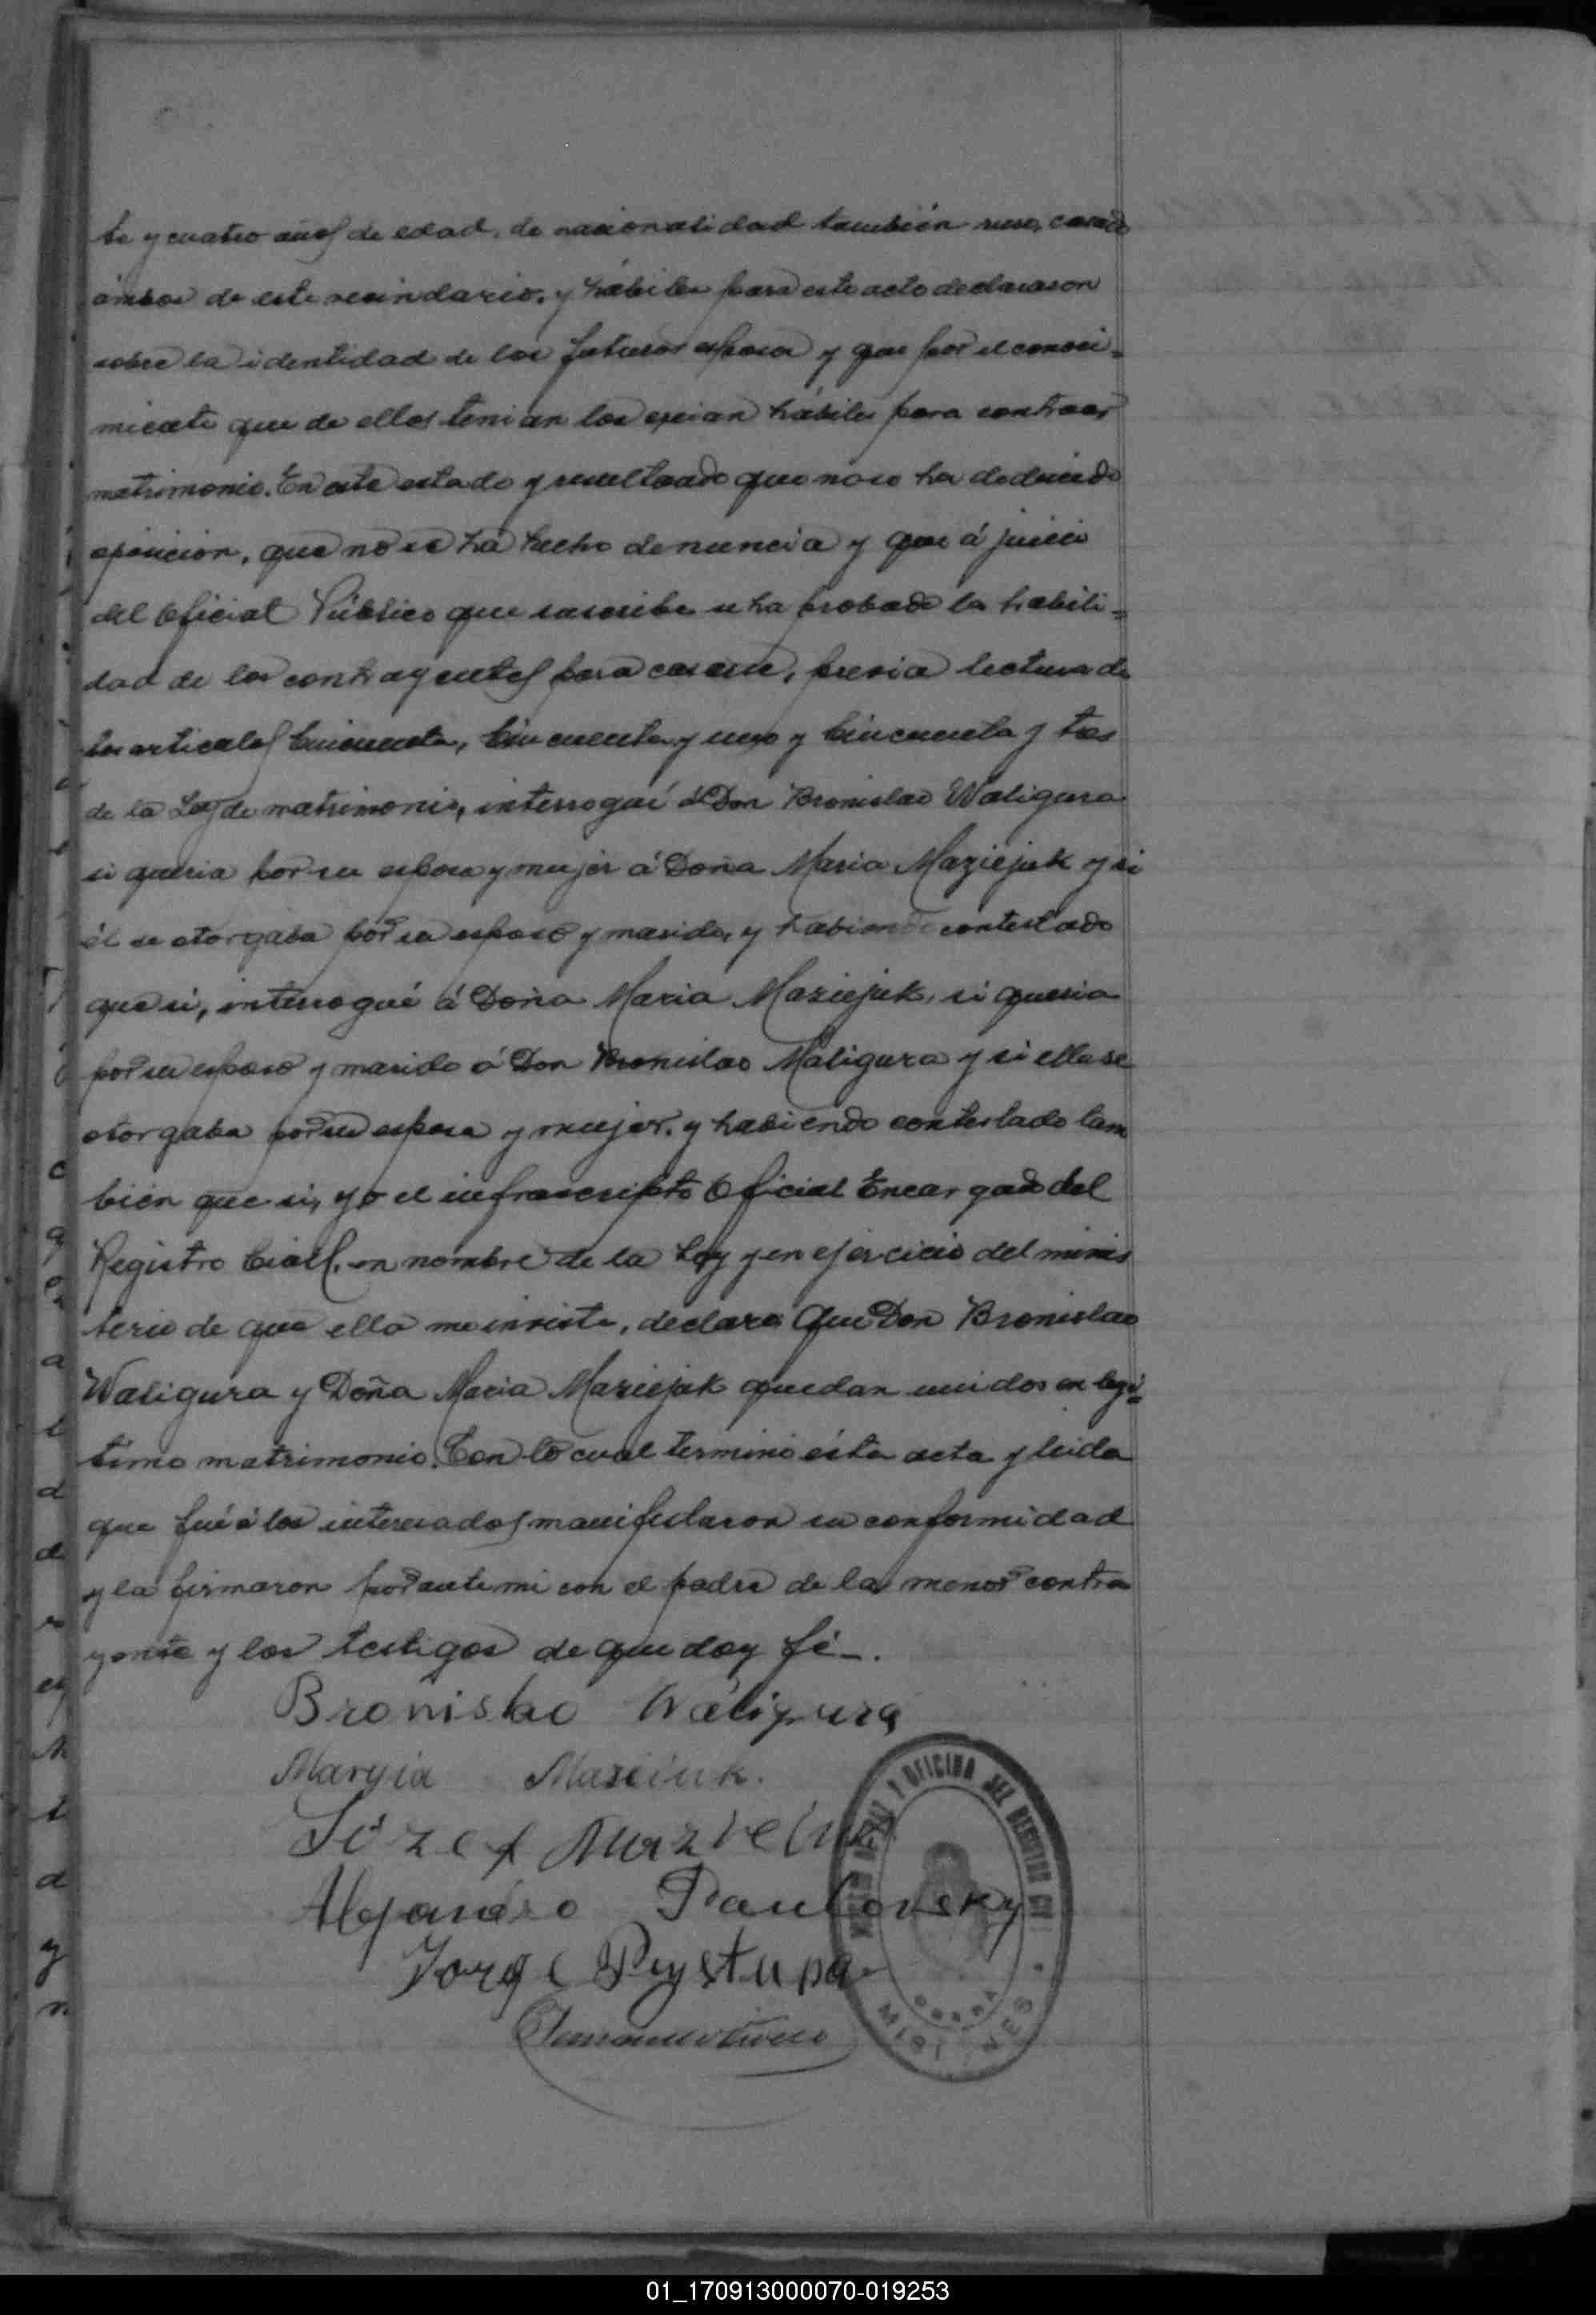 te y cuatro años de edad, de nacionalidad también ruso, casado
ámbos de este vecindario, y hábiles para este acto declararon
sobre la identidad de los futuros esposos y que por el conoci-
miento que de ellos tenian los creian hábiles para contraer
matrimonio. En este estado y resultando que no se ha deducido
oposicion, que no se ha hecho denuncia y que á juicio
del Oficial Público que suscribe se ha probado la habili-
dad de los contrayentes para casarse, previa lectura de
los articulos Cincuenta, Cincuenta y uno y Cincuenta y tres
de la Ley de matrimonio, interrogué á Don Bronislao Waligura
si queria por su esposa y mujer á Doña Maria Maziejuk y si
él se otorgaba por su esposo y marido, y habiendo contestado
que si, interrogué á Doña Maria Maziejuk, si queria
por su esposo y marido á Don Bronislao Waligura y si ella se
otorgaba por su esposa y mujer, y habiendo contestado tam
bién que si, yo el infrascripto Oficial Encargado del
Registro Civil, en nombre de la Ley y en ejercicio del minis
terio de que ella me inviste, declaro Que Don Bronislao
Waligura y Doña Maria Maziejuk quedan unidos en legi-
timo matrimonio. Con lo cual terminó ésta acta y leida
que fué á los interesados manifestaron su conformidad
y la firmaron por ante mi con el padre de la menor contra
yente y los testigos de que doy fé_.
Bronislao Waligura
Maryia Maziuk.
Józef
Alejandro Paulovsky
Jorge Prystupa
OFICINA DEL REGISTRO CIVIL
MISIONES
01_170913000070-019253